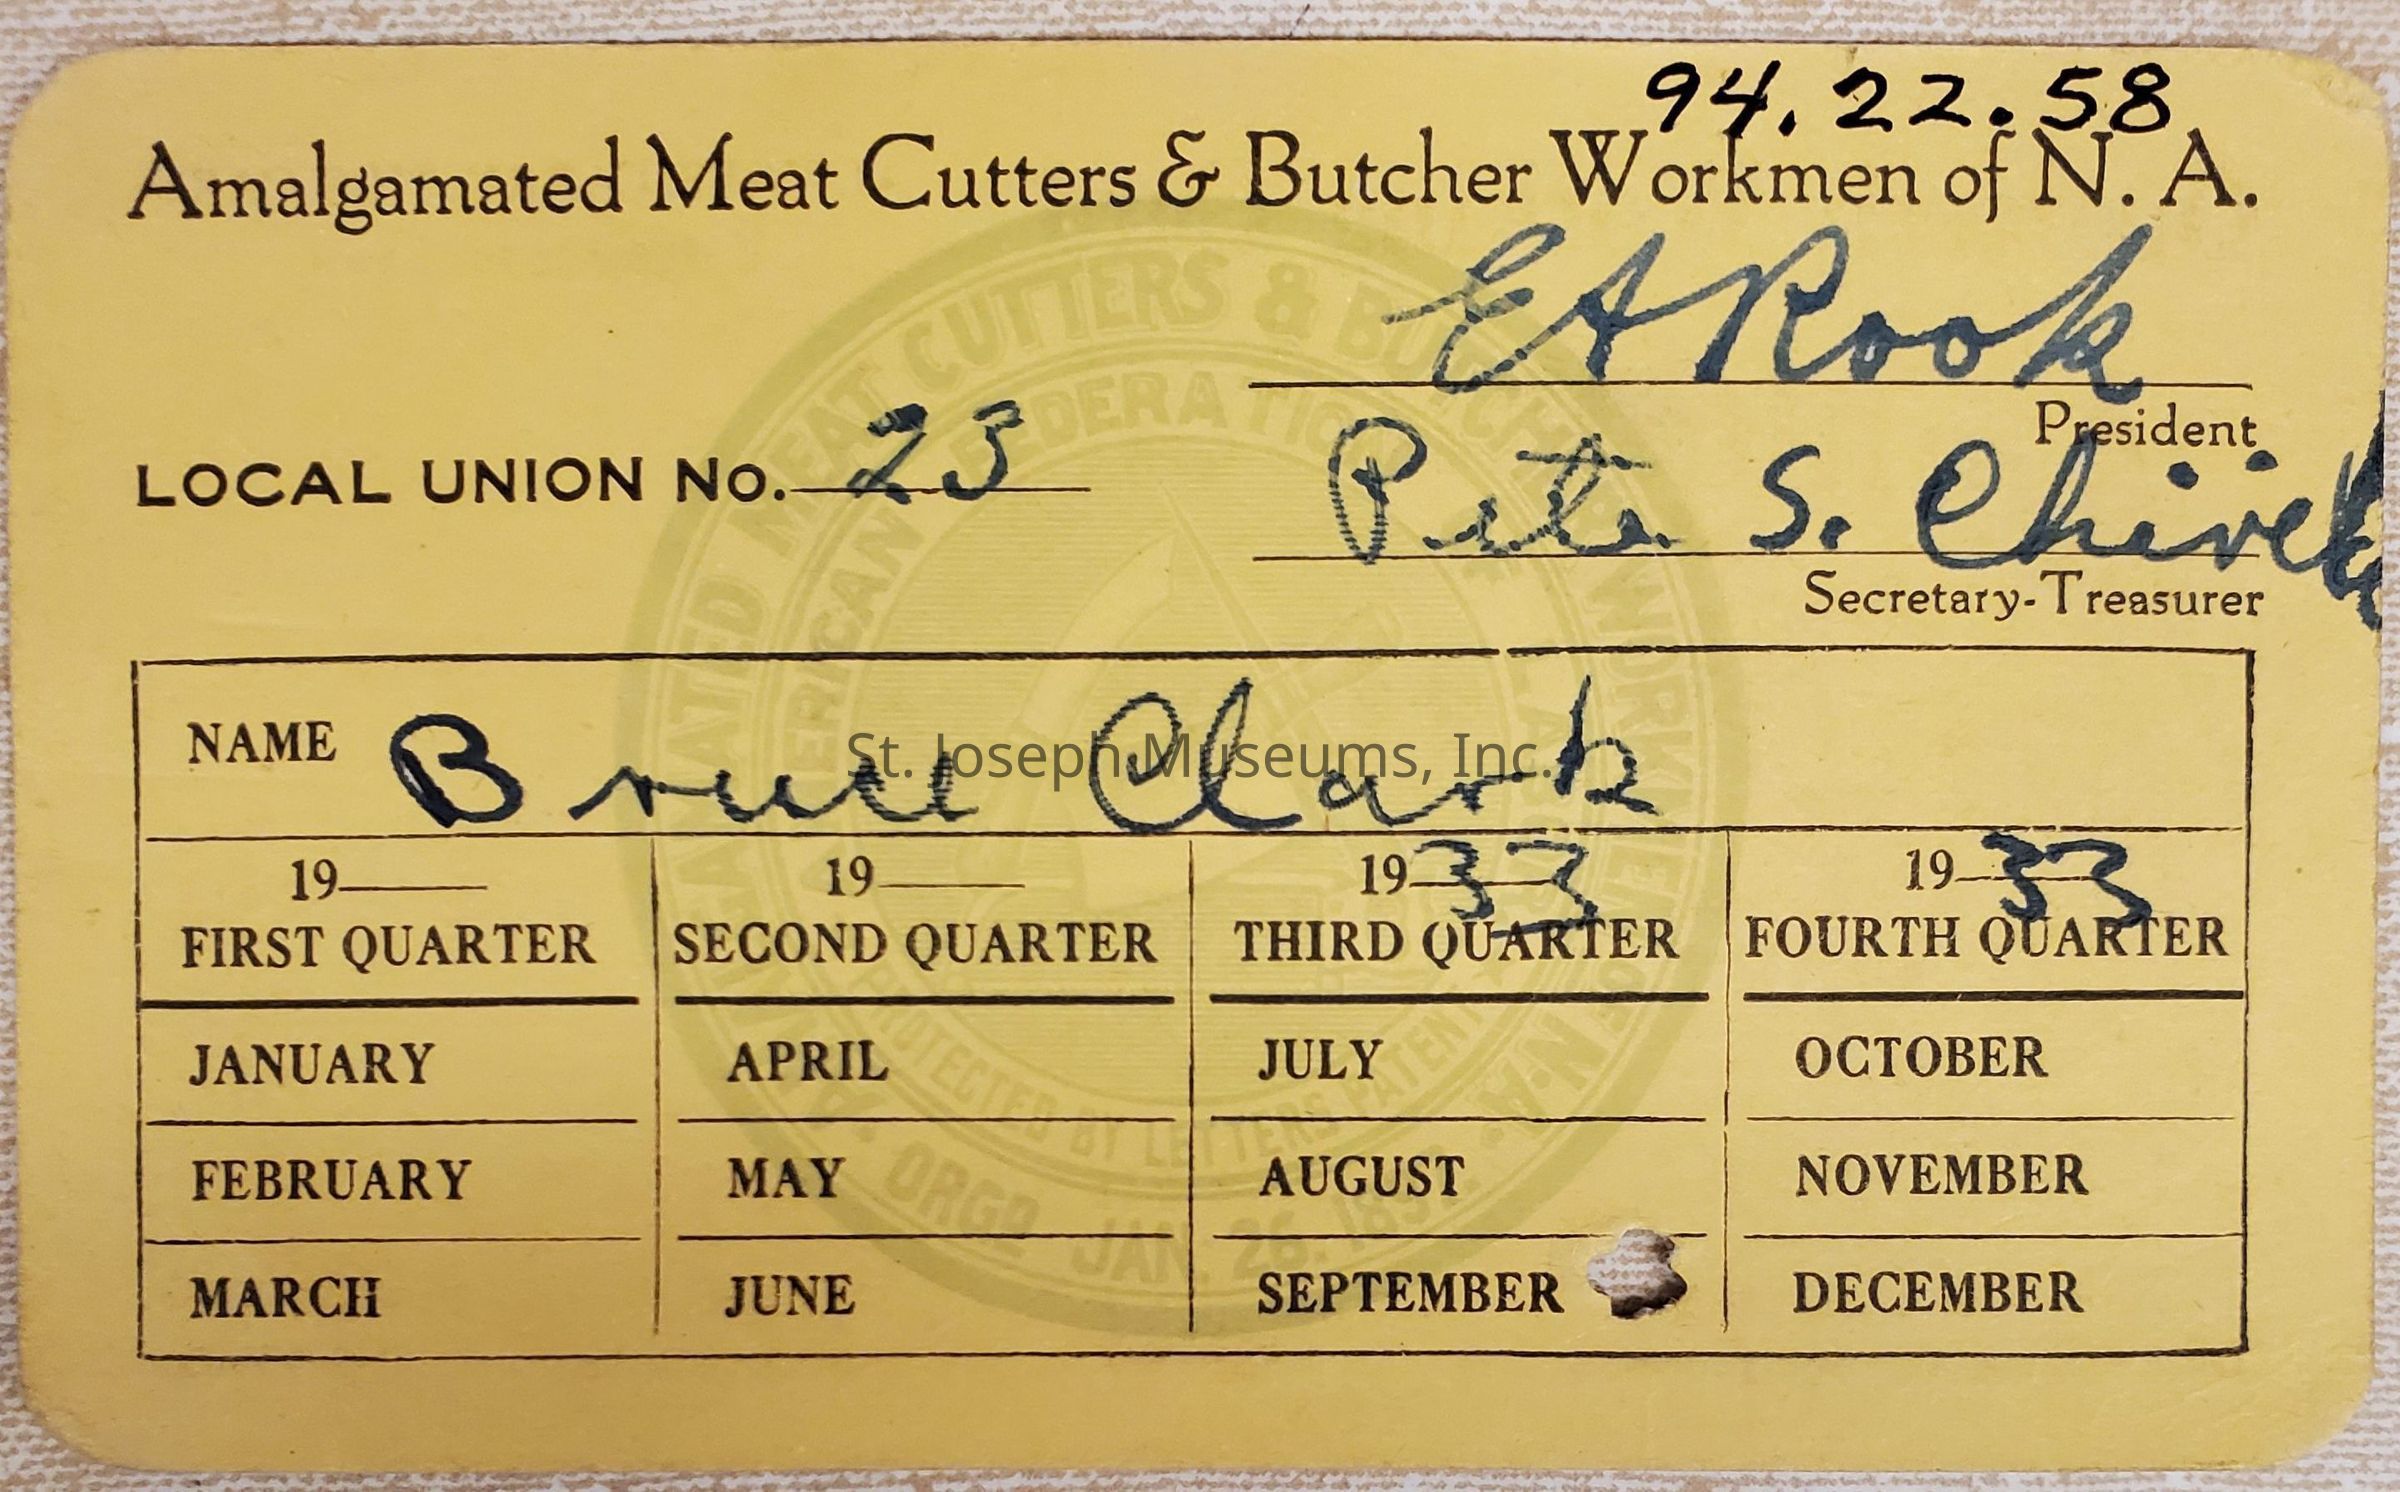 94.22.58
Amalgamated Meat Cutters & Butcher Workmen of N. A.
E A Rook
President
LOCAL UNION No. 23
Pete S.
Secretary-Treasurer
NAME Bruce Clark
St. Joseph Museums, Inc.
19 19 1933 1933
FIRST QUARTER SECOND QUARTER THIRD QUARTER FOURTH QUARTER
JANUARY APRIL JULY OCTOBER
FEBRUARY MAY AUGUST NOVEMBER
MARCH JUNE SEPTEMBER DECEMBER
AMALGAMATED MEAT CUTTERS & BUTCHER WORKMEN OF N.A.
AMERICAN FEDERATION OF LABOR
PROTECTED BY LETTERS PATENT
ORGD JAN. 26. 1897.